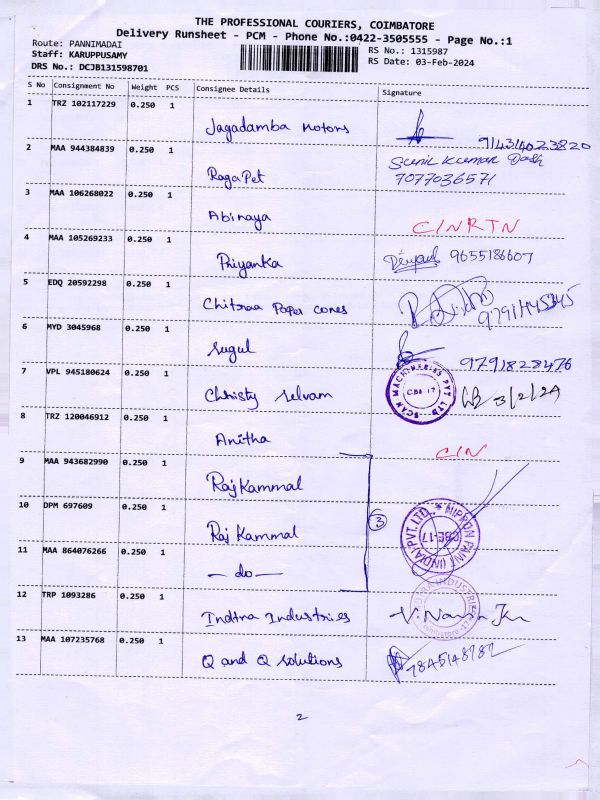 THE PROFESSIONAL COURIERS, COIMBATORE
Delivery Runsheet - PCM - Phone No.:0422-3505555 - Page No.:1
Route: PANNIMADAI RS No.: 1315987
Staff: KARUPPUSAMY RS Date: 03-Feb-2024
DRS No.: DCJB131598701
S No Consignment No Weight PCS Consignee Details Signature
1 TRZ 102117229 0.250 1
Jagadamba Motors 914314023820
2 MAA 944384839 0.250 1 Sunil Kumar Dash
RagaPet 7077036571
3 MAA 106268022 0.250 1
Abinaya C/N RTN
4 MAA 105269233 0.250 1
Priyanka 9655186607
5 EDQ 20592298 0.250 1
Chitraa Paper cones
6 MYD 3045968 0.250 1
Sugul 9791828476
7 VPL 945180624 0.250 1 SCAN MACHINERIES PVT LTD CBE-17
Christy Selvam 3/2/24
8 TRZ 120046912 0.250 1
Anitha C/N
9 MAA 943682990 0.250 1
Raj Kammal
10 DPM 697609 0.250 1
Raj Kammal 3 NIPPON PAINT (INDIA) PVT. LTD. CBE-17
11 MAA 864076266 0.250 1
— do —
12 TRP 1093286 0.250 1
Indtra Industries
13 MAA 107235768 0.250 1
Q and Q solutions 7845148782
2